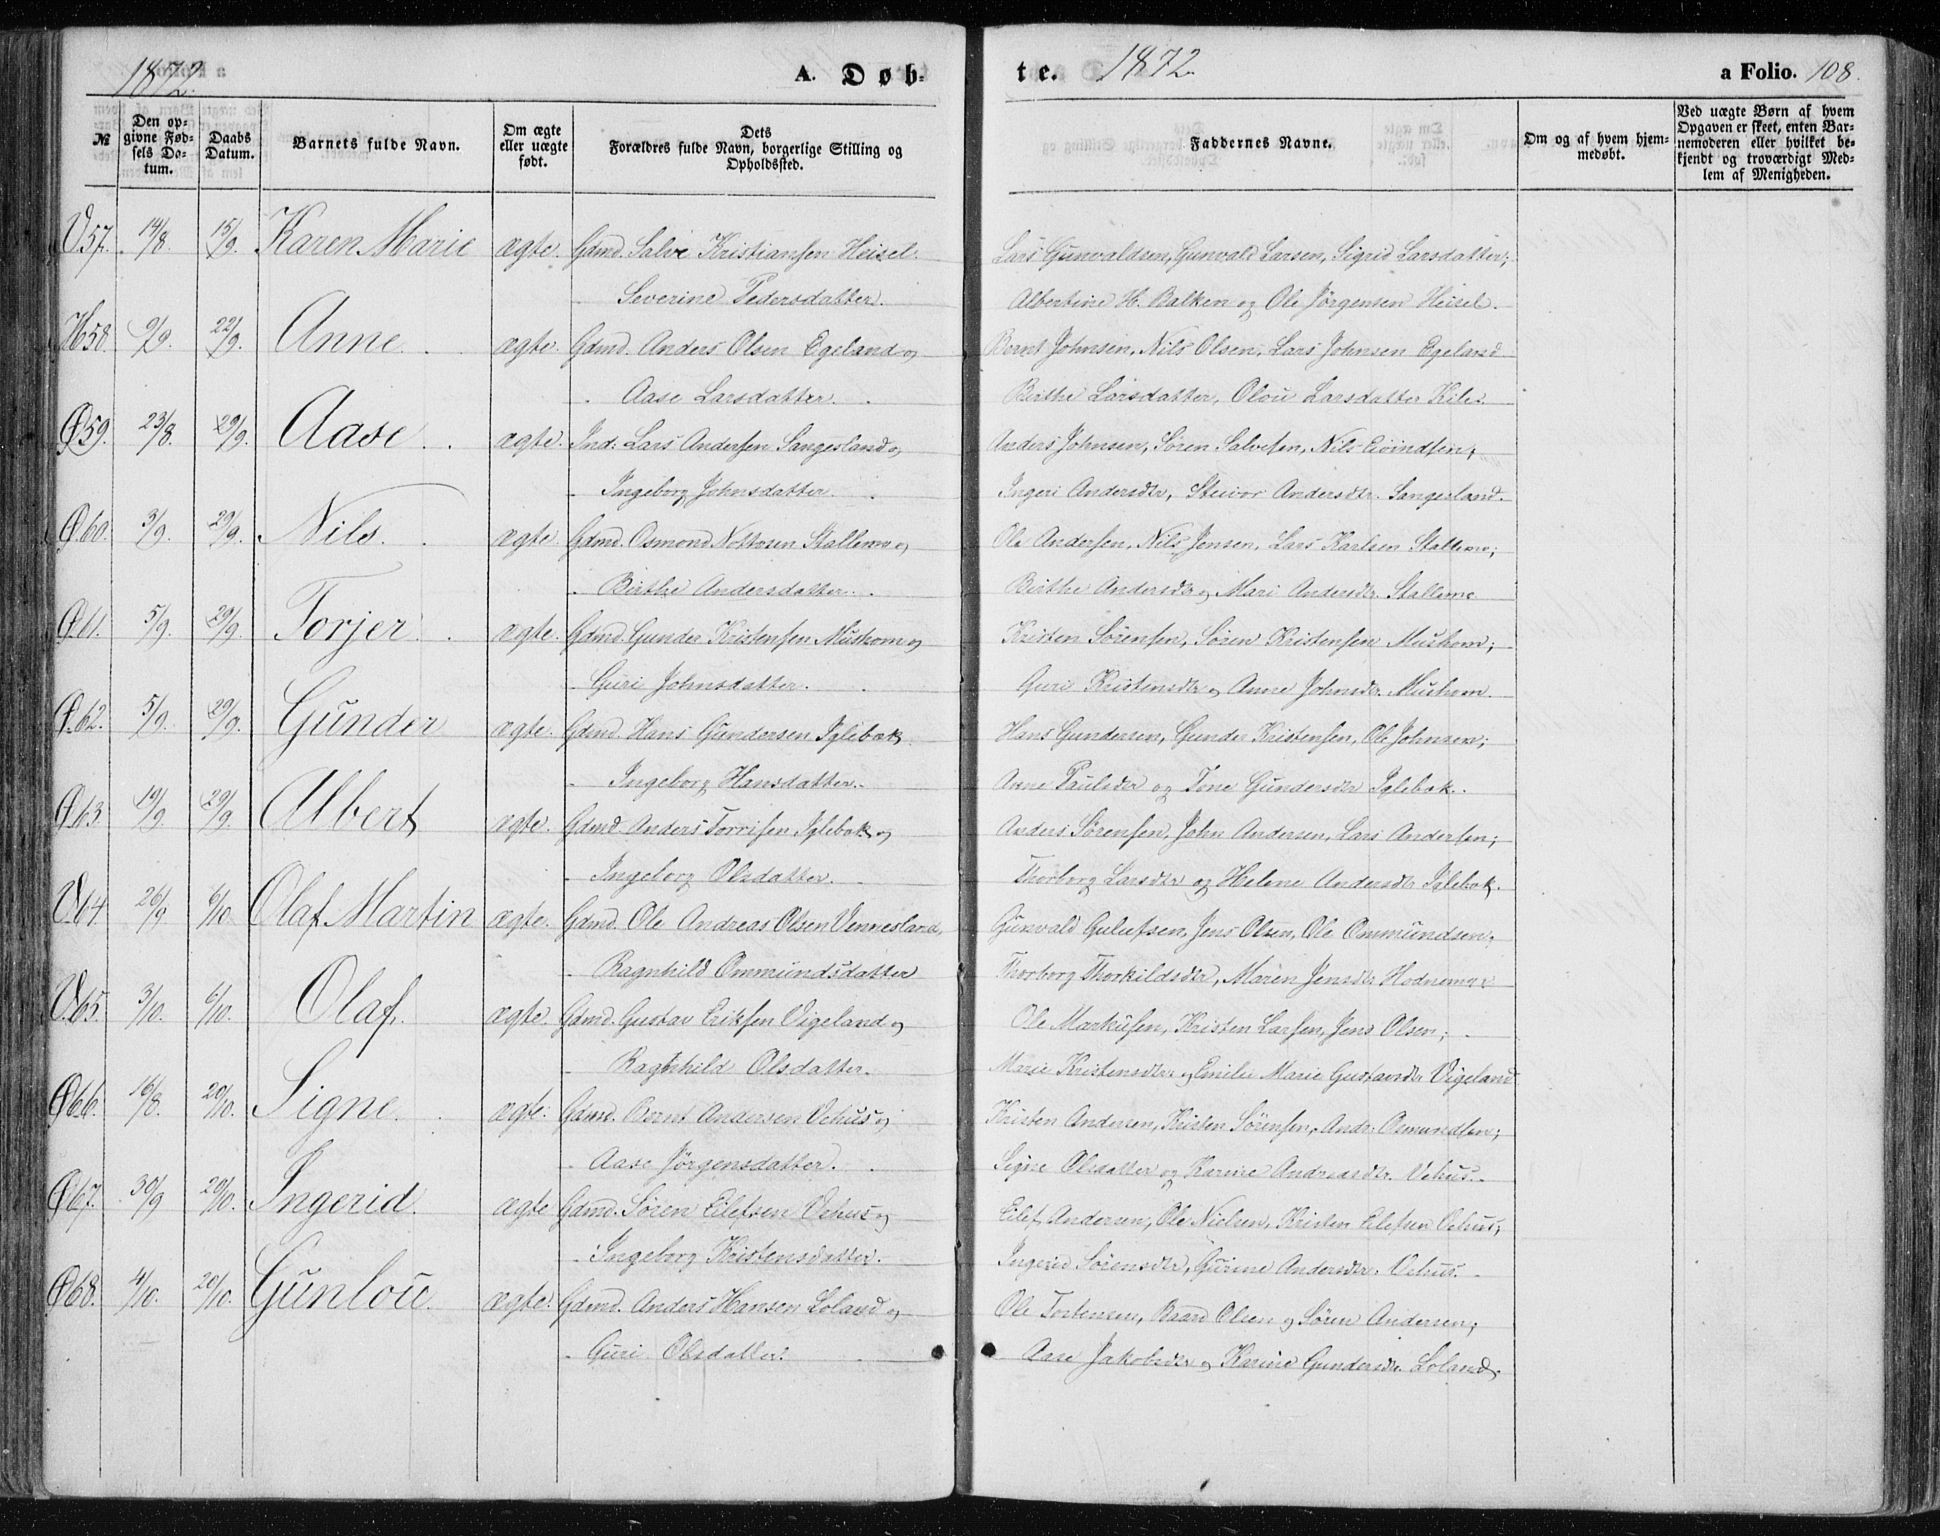 1872. A. Døb-
№ Den opgivne Fødsels Datum. Daabs Datum. Barnets fulde Navn. Om ægte eller uægte født. Dets Forældres fulde Navn, borgerlige Stilling og Opholdssted.
V 57. 14/8. 15/9. Karen Marie ægte. Gdmd. Salve Kristiansen Heisel.
Severine Pedersdatter.
H 58. 9/9. 22/9. Anne. ægte. Gdmd. Anders Olsen Egeland og
Aase Larsdatter.
Ø 59. 23/8. 29/9. Aase. ægte. Ind. Lars Andersen Sangesland og
Ingeborg Johnsdatter.
Ø 60. 3/9. 29/9. Nils. ægte. Gdmd. Osmond Stallemo og
Birthe Andersdatter.
Ø 61. 5/9. 29/9. Torjer. ægte. Gdmd. Gunder Kristensen Mushom og
Guri Johnsdatter.
Ø 62. 5/9. 29/9. Gunder ægte. Gdmd. Hans Gundersen Iglebæk
Ingeborg Hansdatter.
Ø 63. 19/9. 29/9. Albert ægte. Gdmd. Anders Torrisen Iglebæk og
Ingeborg Olsdatter.
V 64. 26/9. 6/10. Olaf Martin ægte. Gdmd. Ole Andreas Olsen Vennesland,
Ragnhild Ommundsdatter
V 65. 3/10. 6/10. Olaf. ægte. Gdmd. Gustav Eriksen Vigeland og
Ragnhild Olsdatter.
Ø 66. 16/8. 20/10. Signe. ægte. Gdmd. Bernt Andersen Vehus og
Aase Jørgensdatter.
Ø 67. 30/9. 20/10. Ingerid. ægte Gdmd. Søren Eilefsen Vehus og
Ingeborg Kristensdatter.
Ø 68. 4/10. 20/10. Gunlou. ægte. Gdmd. Anders Hansen Loland og
Guri Olsdatter.
te. 1872. a Folio. 108.
Faddernes Navne. Om og af hvem hjemmedøbt. Ved uægte Børn af hvem Opgaven er skeet, enten Barnemoderen eller hvilket bekjendt og troværdigt Medlem af Menigheden.
Lars Gunvaldsen, Gunvald Larsen, Sigrid Larsdatter,
Albertine H. Balken og Ole Jørgensen Heisel.
Bernt Johnsen, Nils Olsen, Lars Johnsen Egeland
Birthe Larsdatter, Olou Larsdatter Kile.
Anders Johnsen, Søren Salvesen, Nils Eivindsen,
Ingeri Andersdtr, Andersdtr. Sangesland.
Ole Andersen, Nils Jensen, Lars Karlsen Stallemo;
Birthe Andersdtr og Mari Andersdtr. Stallemo
Kristen Sørensen, Søren Kristensen Mushom;
Guri Kristensdtr og Anne Johnsdtr. Mushom.
Hans Gundersen, Gunder Kristensen, Ole Johnsen;
Anne Paulsdtr og Tone Gundersdtr Iglebæk.
Anders Sørensen, John Andersen, Lars Andersen;
Thorborg Larsdtr og Helene Andersdtr Iglebæk.
Gunvald Gulufsen, Jens Olsen, Ole Ommundsen,
Thorborg Thorkildsdtr, Maren Jensdtr Hodnemyr
Ole Markusen, Kristen Larsen, Jens Olsen;
Marie Kristensdtr og Emilie Marie Gustavsdtr Vigeland
Kristen Andersen, Kristen Sørensen, Andr. Osmundsen;
Signe Olsdatter og Karine Andreasdtr. Vehus.
Eilef Andersen, Ole Nielsen, Kristen Eilefsen Vehus,
Ingerid Sørensdtr, Gurine Andersdtr. Vehus.
Ole Tostensen, Baard Olsen og Søren Andersen;
Aase Jakobsdtr og Karine Gundersdtr. Loland.